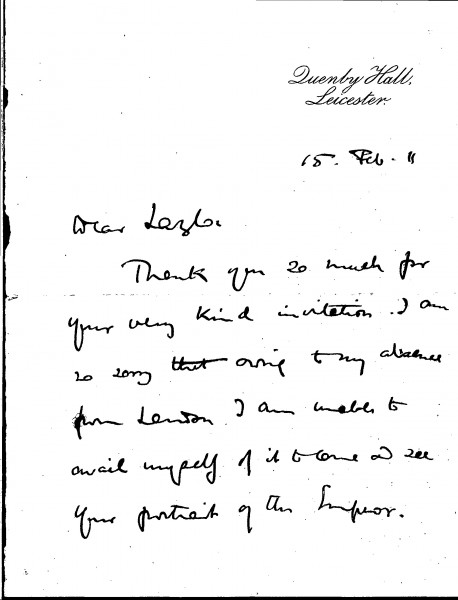 Quenby Hall,
Leicester.
15. Feb. 11
Dear Lazlo.
Thank you so much for
your very kind invitation. I am
so sorry that owing to my absence
from London I am unable to
avail myself of it to come & see
your portrait of the Emperor.